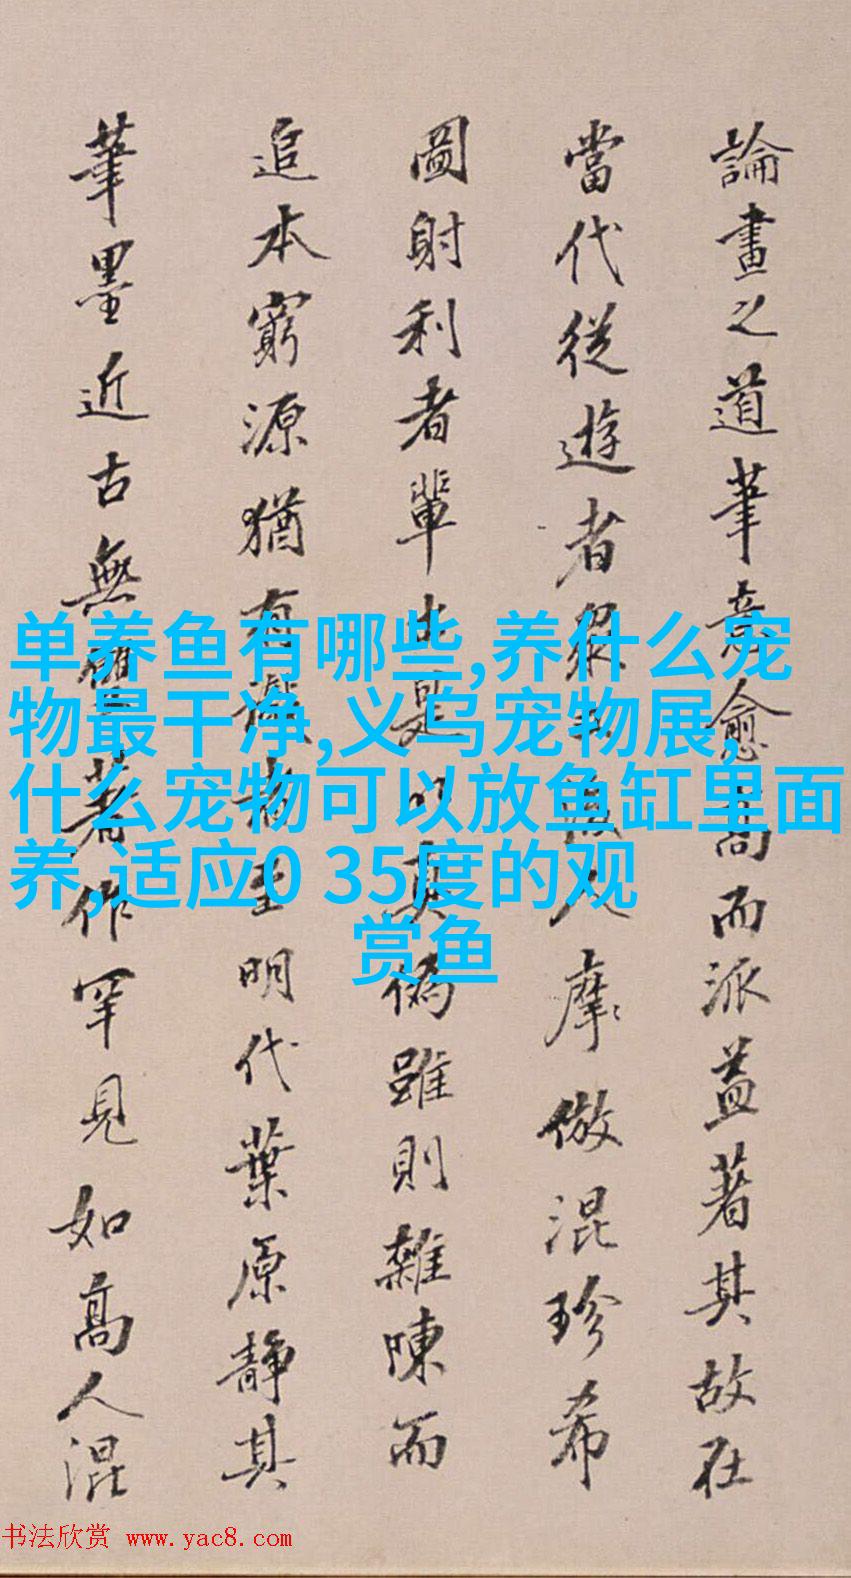 論畫之道筆意愈高而派益著其故在
當代從遊者眾人摩倣混珍希
圖射利者輩由是以真偽雖則雜陳而
追本窮源猶有識者至明代葉原靜其
筆墨近古無著作罕見如高人混
单养鱼有哪些,养什么宠
物最干净,义乌宠物展,
什么宠物可以放鱼缸里面
养,适应0 35度的观
赏鱼
书法欣赏 www.yac8.com